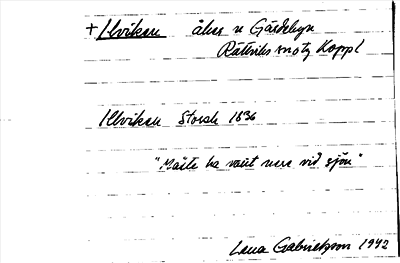 + Ilviken åker v Gärdebyn
Rättviks mot Koppl
Ilviken Storsk 1836
"Måste ha varit nere vid sjön"
Lena Gabrielsson 1942